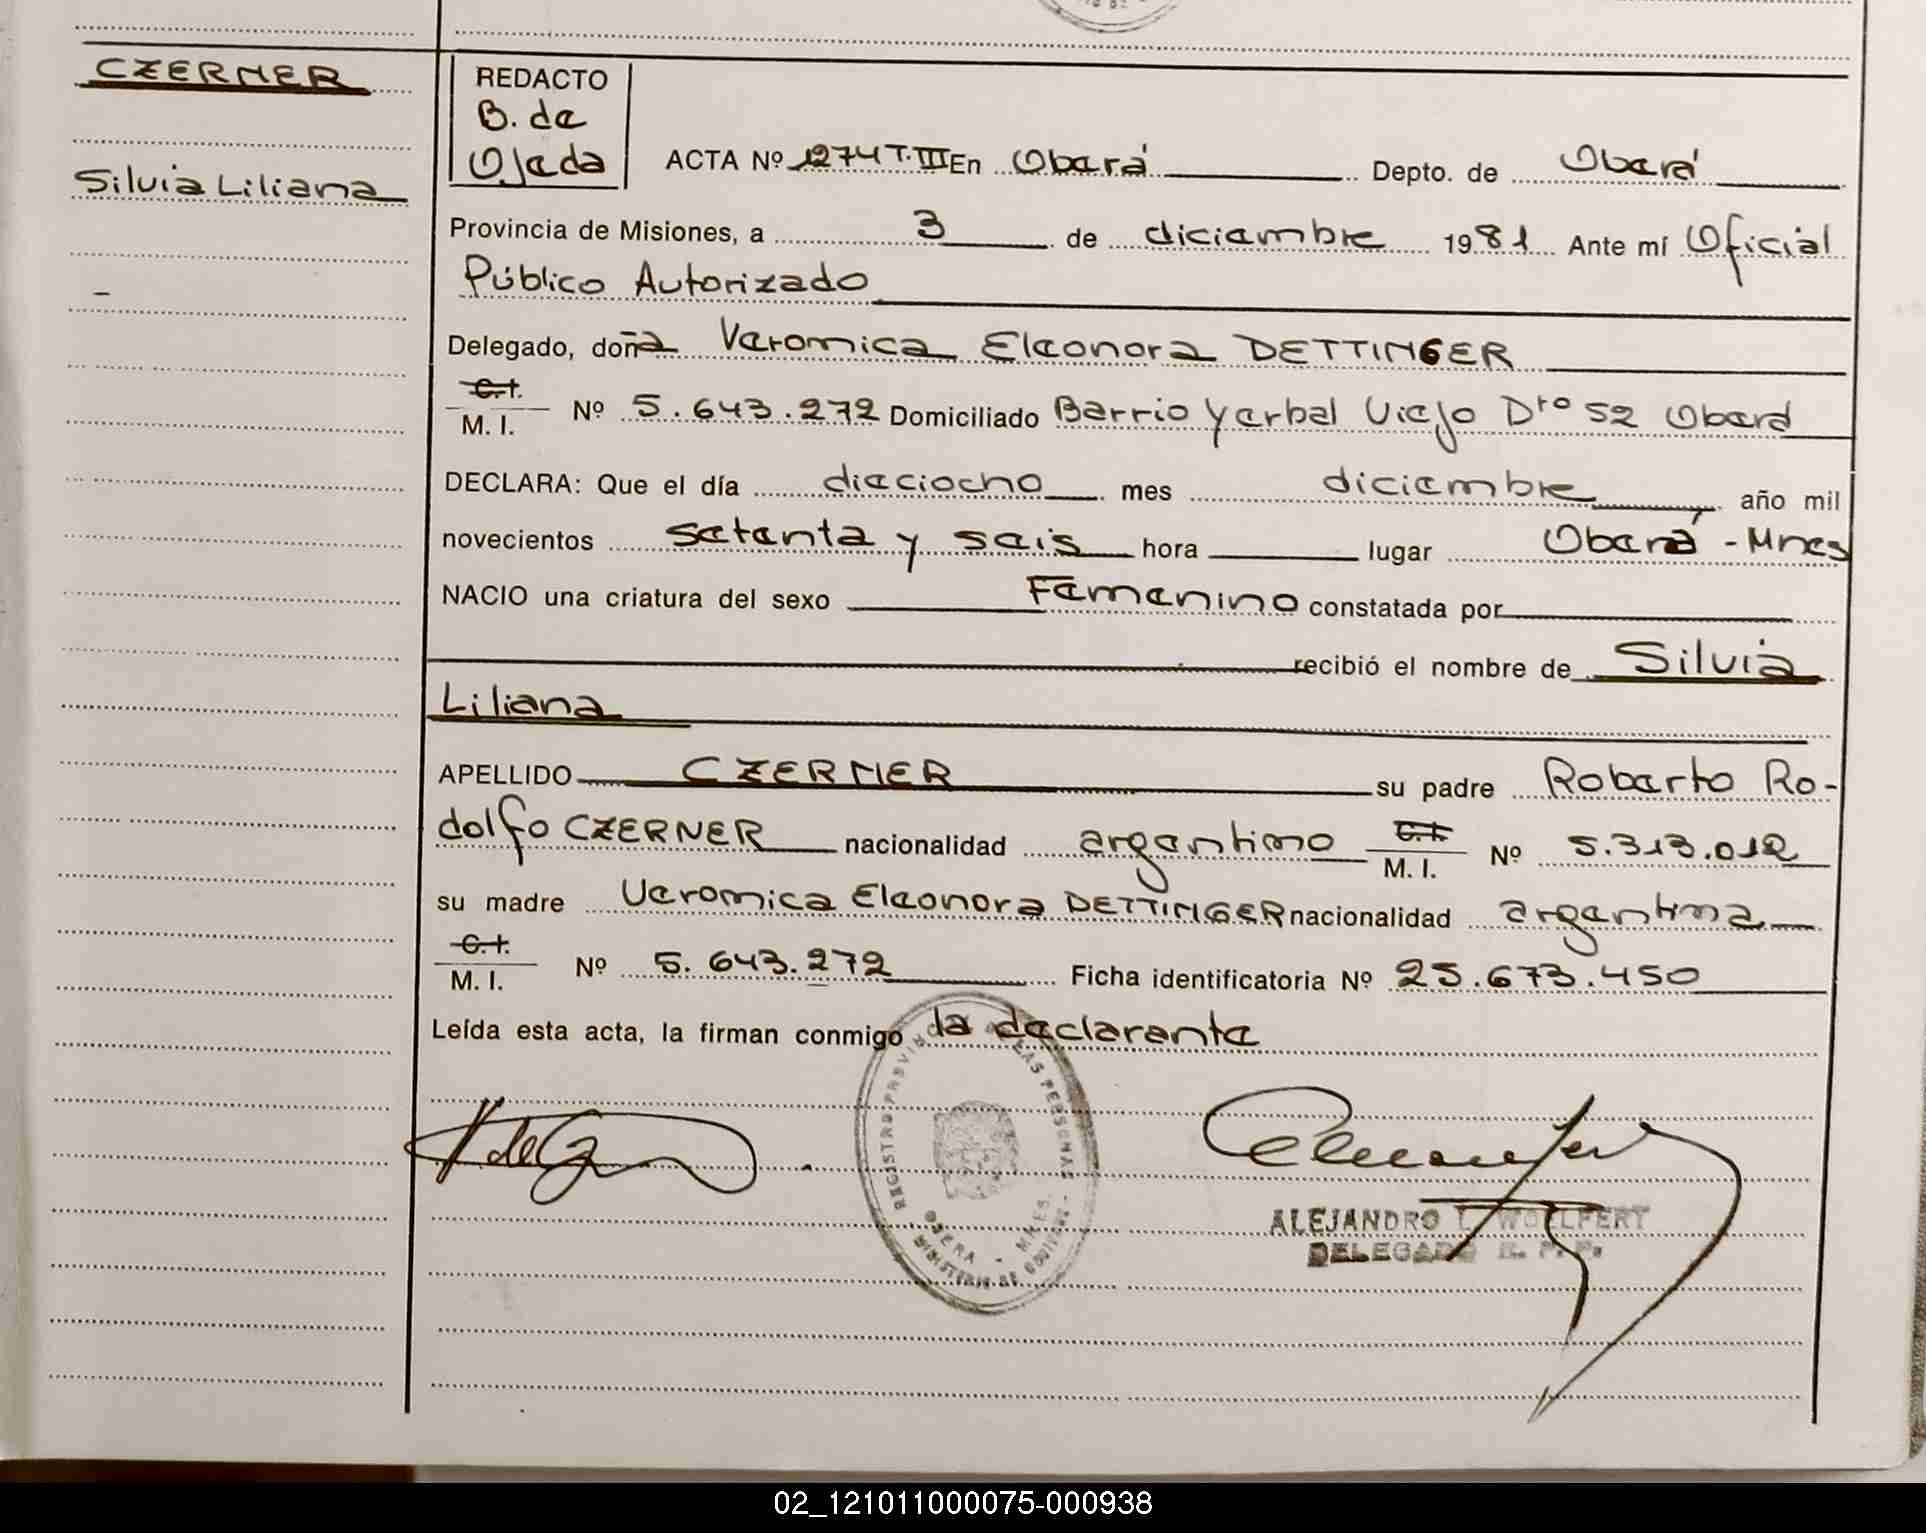 CZERNER
Silvia Liliana
REDACTO
B. de
Ojeda
ACTA Nº 1274 T. III En Oberá Depto. de Oberá
Provincia de Misiones, a 3 de diciembre 1981 Ante mí Oficial
Público Autorizado
Delegado, doña Veronica Eleonora DETTINGER
C.I.
M. I. Nº 5.643.272 Domiciliado Barrio Yerbal Viejo Dto 52 Oberá
DECLARA: Que el día dieciocho mes diciembre año mil
novecientos setenta y seis hora lugar Oberá - Mnes
NACIO una criatura del sexo Femenino constatada por
recibió el nombre de Silvia
Liliana
APELLIDO CZERNER su padre Roberto Ro-
dolfo CZERNER nacionalidad argentino C.I. M. I. Nº 5.313.012
su madre Veronica Eleonora DETTINGER nacionalidad argentina
C.I.
M. I. Nº 5.643.272 Ficha identificatoria Nº 25.673.450
Leída esta acta, la firman conmigo la declarante
REGISTRO PROVINCIAL LAS PERSONAS
OBERA - MNES.
MINISTERIO DE GOBIERNO
ALEJANDRO L. WOELFERT
DELEGADO R. P. P.
02_121011000075-000938